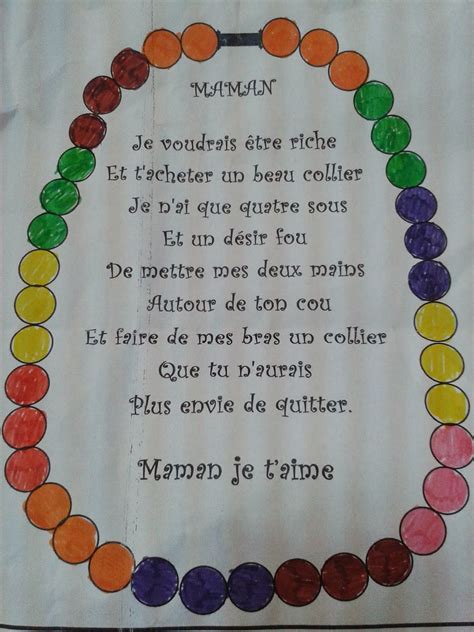 MAMAN
Je voudrais être riche
Et t'acheter un beau collier
Je n'ai que quatre sous
Et un désir fou
De mettre mes deux mains
Autour de ton cou
Et faire de mes bras un collier
Que tu n'aurais
Plus envie de quitter.
Maman je t'aime